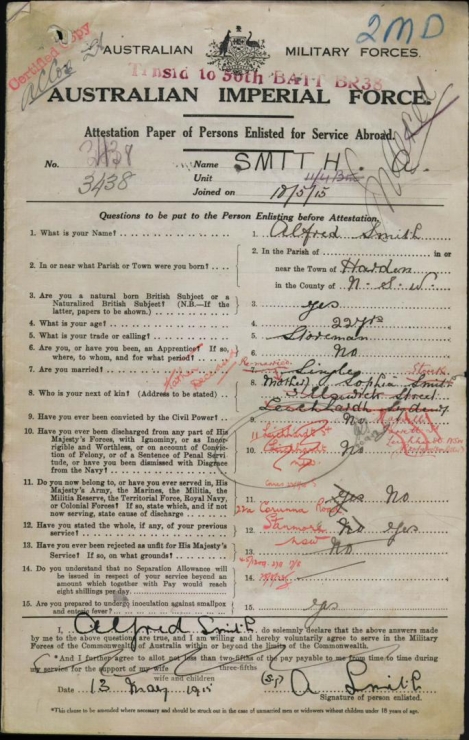 Certified Copy
2MD
AUSTRALIAN MILITARY FORCES.
Transfd to 56th BATT
AUSTRALIAN IMPERIAL FORCE.
Attestation Paper of Persons Enlisted for Service Abroad.
No. 3438 Name SMITH A.
3438 Unit
Joined on 18/5/15
Questions to be put to the Person Enlisting before Attestation.
1. What is your Name? 1. Alfred Smith
2. In or near what Parish or Town were you born? 2. In the Parish of in or
near the Town of Harden
in the County of N.S.W.
3. Are you a natural born British Subject or a
Naturalized British Subject? (N.B.—If the
latter, papers to be shown.) 3. yes
4. What is your age? 4. 22 yrs
5. What is your trade or calling? 5. Storeman
6. Are you, or have you been, an Apprentice? If so,
where, to whom, and for what period? 6. No
7. Are you married? 7. Single
8. Who is your next of kin? (Address to be stated) 8. Mother) Sophia Smith
Street
Leichhardt Sydney
9. Have you ever been convicted by the Civil Power? 9. No
10. Have you ever been discharged from any part of His
Majesty's Forces, with Ignominy, or as Incor-
rigible and Worthless, or on account of Conviction
of Felony, or of a Sentence of Penal Servi-
tude, or have you been dismissed with Disgrace
from the Navy? 10. No
11. Do you now belong to, or have you ever served in, His
Majesty's Army, the Marines, the Militia, the
Militia Reserve, the Territorial Force, Royal Navy,
or Colonial Forces? If so, state which, and if not
now serving, state cause of discharge 11. Yes No
12. Have you stated the whole, if any, of your previous
service? 12. No Yes
13. Have you ever been rejected as unfit for His Majesty's
Service? If so, on what grounds? 13. No
14. Do you understand that no Separation Allowance will
be issued in respect of your service beyond an
amount which together with Pay would reach
eight shillings per day. 14.
15. Are you prepared to undergo inoculation against smallpox
and enteric fever? 15. yes
I, Alfred Smith do solemnly declare that the above answers made
by me to the above questions are true, and I am willing and hereby voluntarily agree to serve in the Military
Forces of the Commonwealth of Australia within or beyond the limits of the Commonwealth.
*And I further agree to allot not less than two-fifths of the pay payable to me from time to time during
three-fifths
my service for the support of my wife
wife and children
Date 13 May 1915 A Smith
Signature of person enlisted.
*This clause to be amended where necessary and should be struck out in the case of unmarried men or widowers without children under 18 years of age.